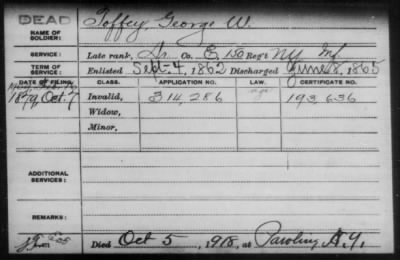 DEAD
Toffey, George W.
NAME OF SOLDIER:
SERVICE: Late rank, Co. E, 150 Reg't NY Inf
TERM OF SERVICE: Enlisted Sept. 4, 1862 Discharged June 8, 1865
DATE OF FILING. CLASS. APPLICATION NO. LAW. CERTIFICATE NO.
1879, Oct. 7 Invalid, 314,286 193,636
Widow,
Minor,
ADDITIONAL SERVICES:
REMARKS:
Died Oct 5, 1918, at Pawling N.Y.